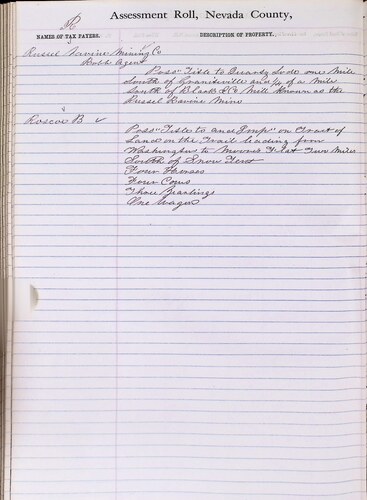 R
Assessment Roll, Nevada County,
NAMES OF TAX PAYERS.
DESCRIPTION OF PROPERTY.
Russel Ravine Mining Co
Agent
Poss" Title to Quartz Lode one Mile
South of Graniteville and 1/4 of a Mile
South of Black Mill Known as the
Russel Ravine Mine
Roscoe B ✓
Poss" Title to and Imp" on Tract of
Land on the Trail leading from
Washington to Moores Flat Two Miles
South of Snow Tent
Four Horses
Four Cows
Three Yearlings
One Wagon